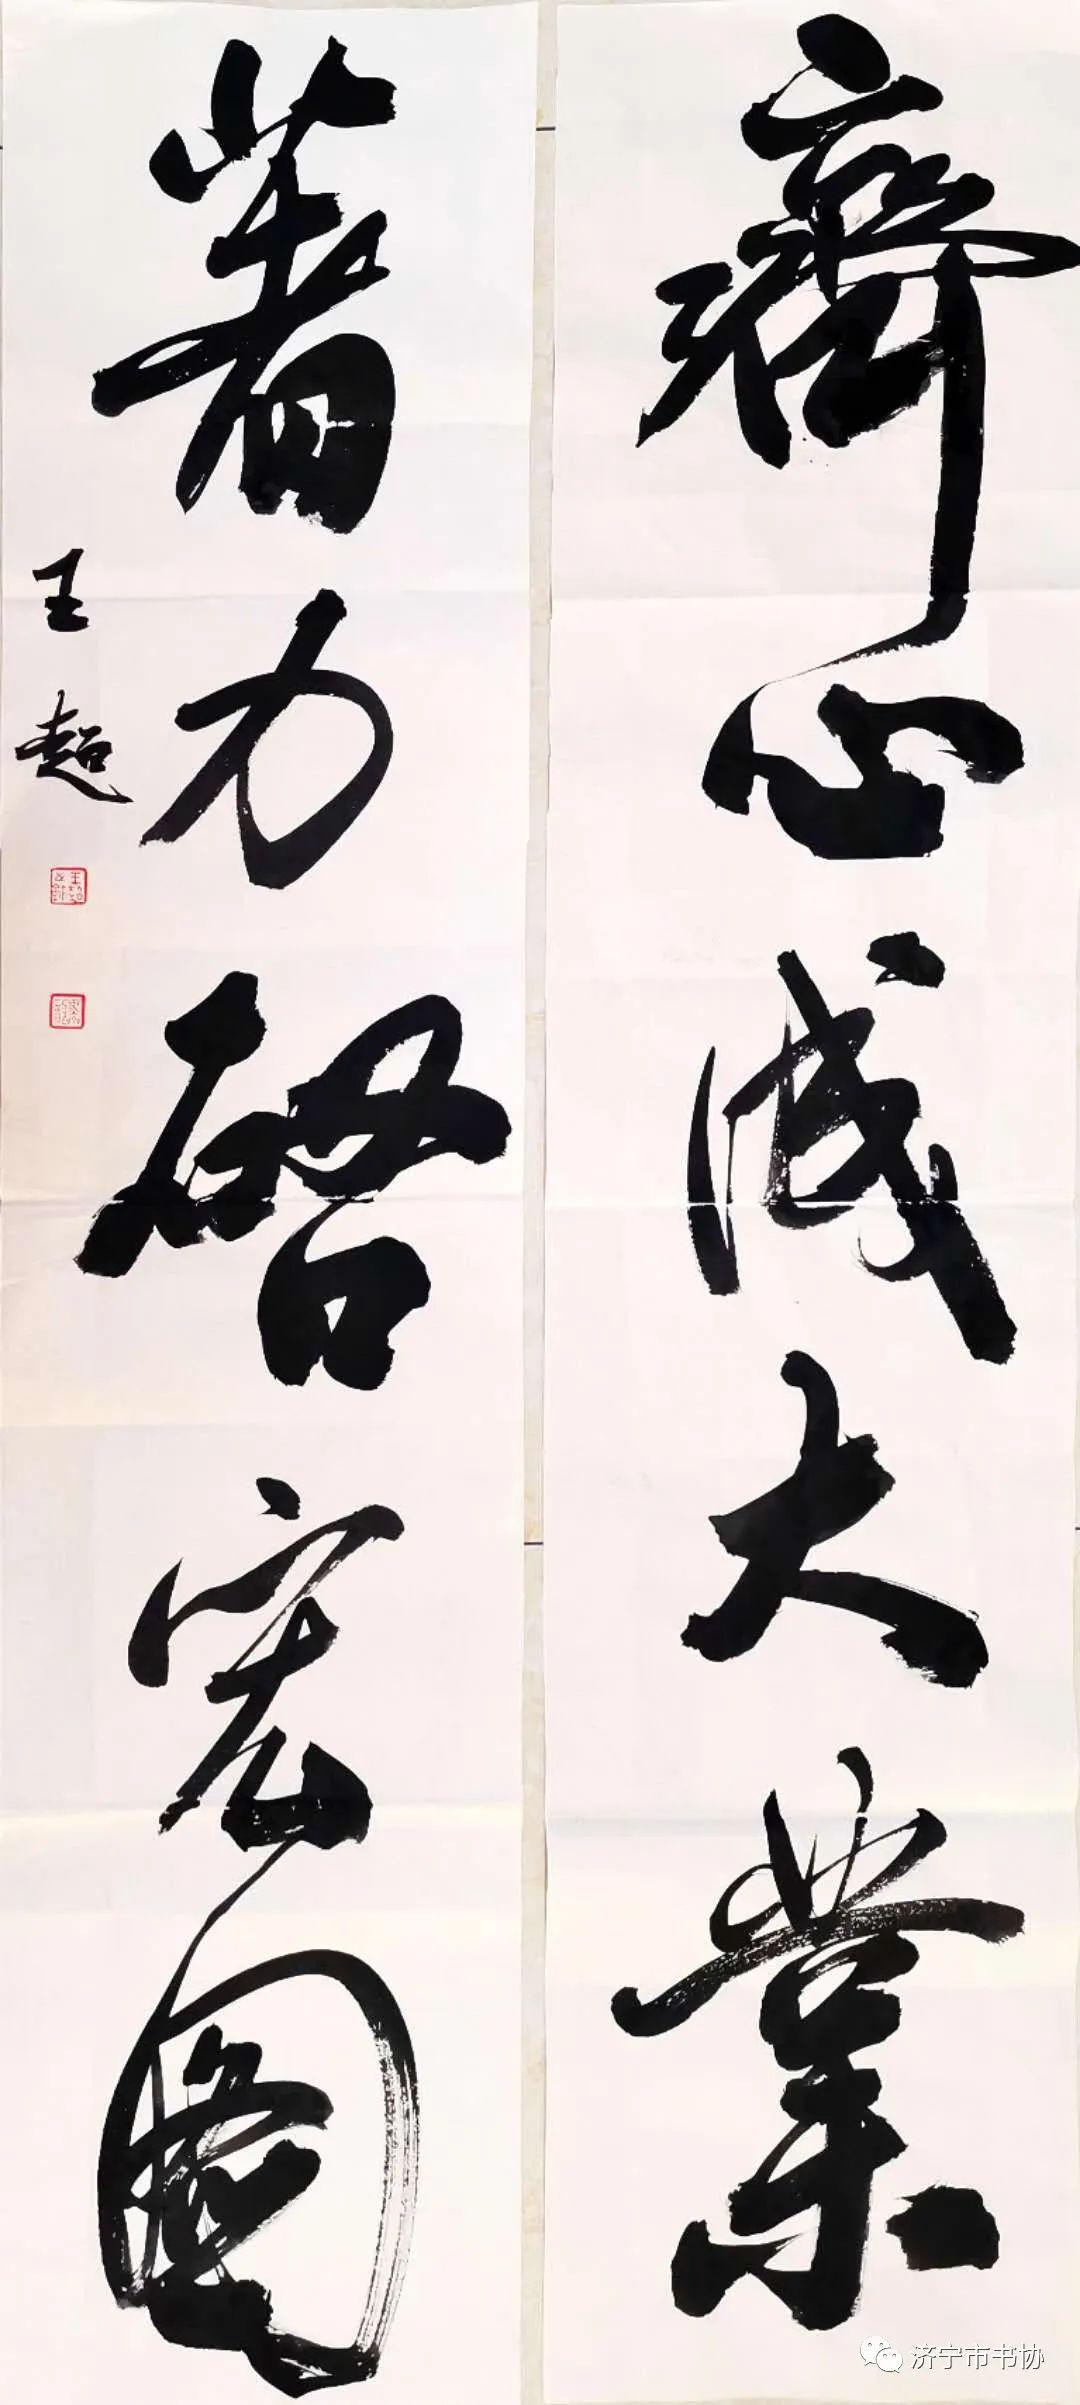 齊心成大業
著力啓宏圖
王超
济宁市书协